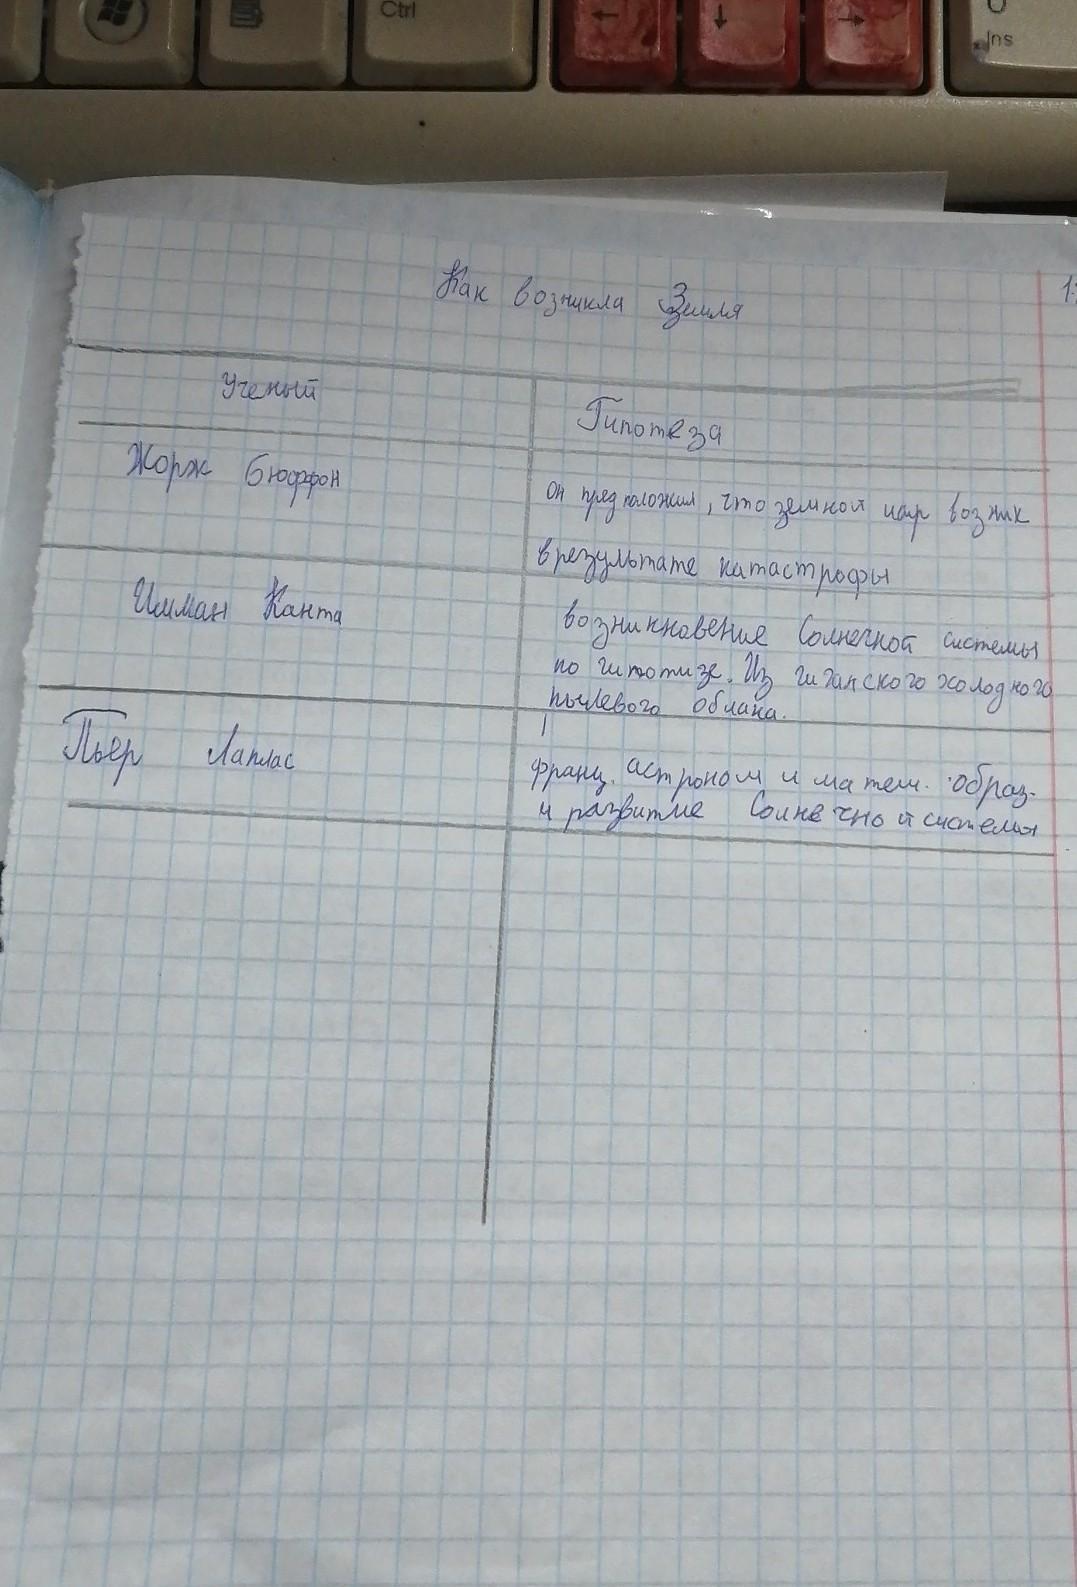 Ctrl
Ins
Как возникла Земля
Ученый
Гипотеза
Жорж Бюффон
он предположил, что земной шар возник
в результате катастрофы
Имман Канта
возникновение Солнечной системы
по гипотизе. Из гиганского холодного
пылевого облака.
Пьер Лаплас
франц. астроном и матем. образ-
и развитие Солнечной системы